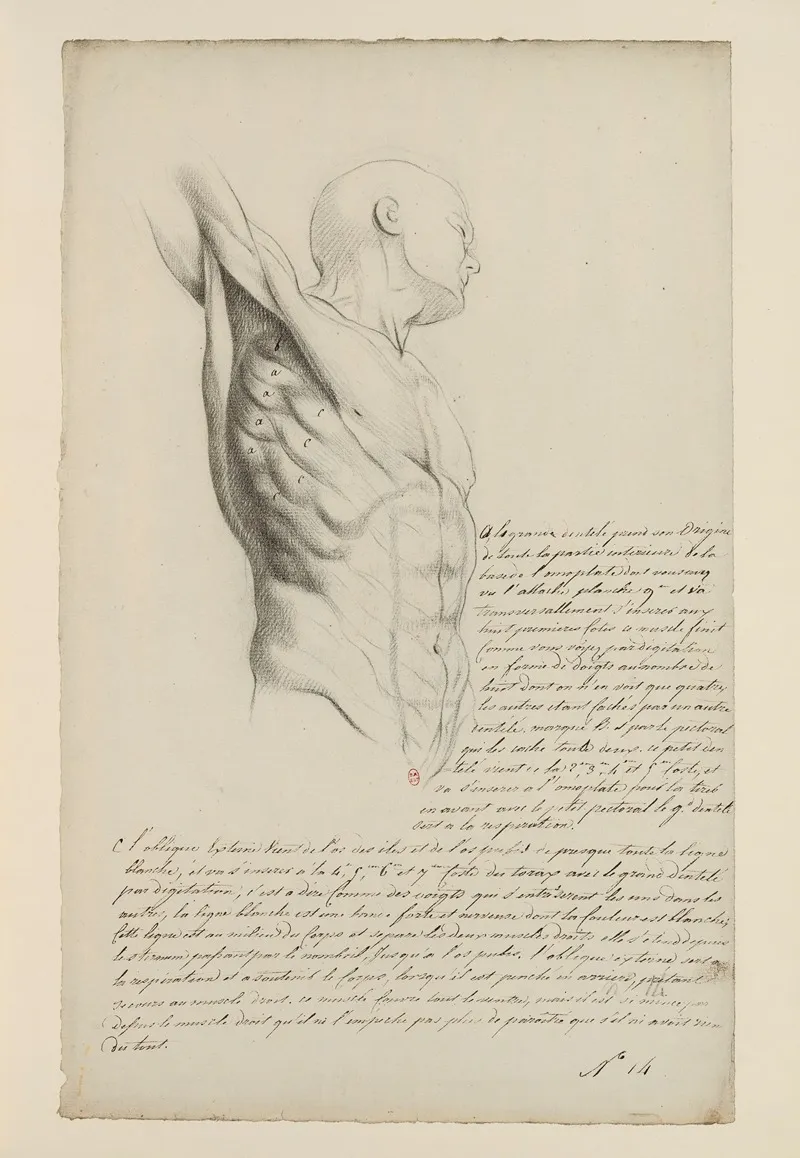 b
a
a
c
a
c
a
c
c
A, le grand dentelé prend son Origine
de toute la partie interieure de la
base de l'omoplate dont vous avez
vu l'attache planche 9me et va
transversallement s'inserer aux
huit premieres Cotes ce muscle finit
Comme vous voyez par digitation
en forme de doigts au nombre de
huit dont on n'en voit que quatre
les autres etant cachés par un autre
dentelé marqué B. et par le pectoral
qui les cache tout deux. ce petit den
telé vient de la 2me 3me 4me et 5me Coste, et
va s'inserer a l'omoplate pour la tirer
en avant avec le petit pectoral le gd dentelé
sert a la respiration.
C l'oblique Externe Vient de l'os des iles et de l'os pubis et de presque toute la ligne
blanche, et va s'inserer à la 4e 5me 6me et 7me Coste du torax avec le grand dentelé
par digitation, c'est a dire Comme des doigts qui s'entrserent les uns dans les
autres, la ligne blanche est une bande forte et nerveuse dont la Couleur est blanche,
Cette ligne est au milieu du Corps et separe les deux muscles droits elle s'etend depuis
le sternum passant par le nombril, Jusqu'a l'os pubes. l'oblique externe sert a
la respiration et a soutenir le Corps, lorsqu'il est penché en arriere, pretant
secours au muscle droit. ce muscle Couvre tout le ventre, mais il est si mince par
dessus le muscle droit qu'il ne l'empeche pas plus de paroitre que s'il ni avoit rien
du tout.
No 14